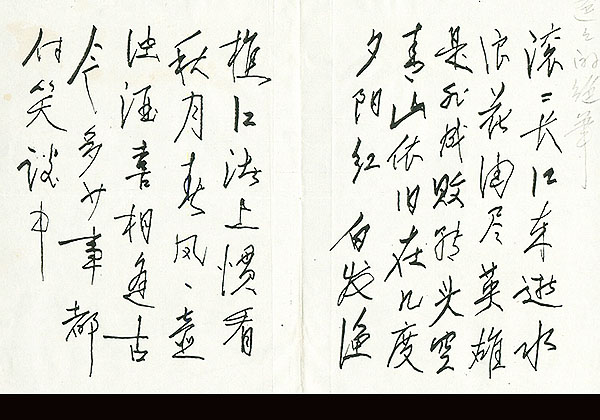 的绝笔
滚〻长江东逝水
浪花淘尽英雄
是非成败转头空
青山依旧在几度
夕阳红 白发渔
樵江渚上惯看
秋月春风一壶
浊酒喜相逢古
今多少事都
付笑谈中